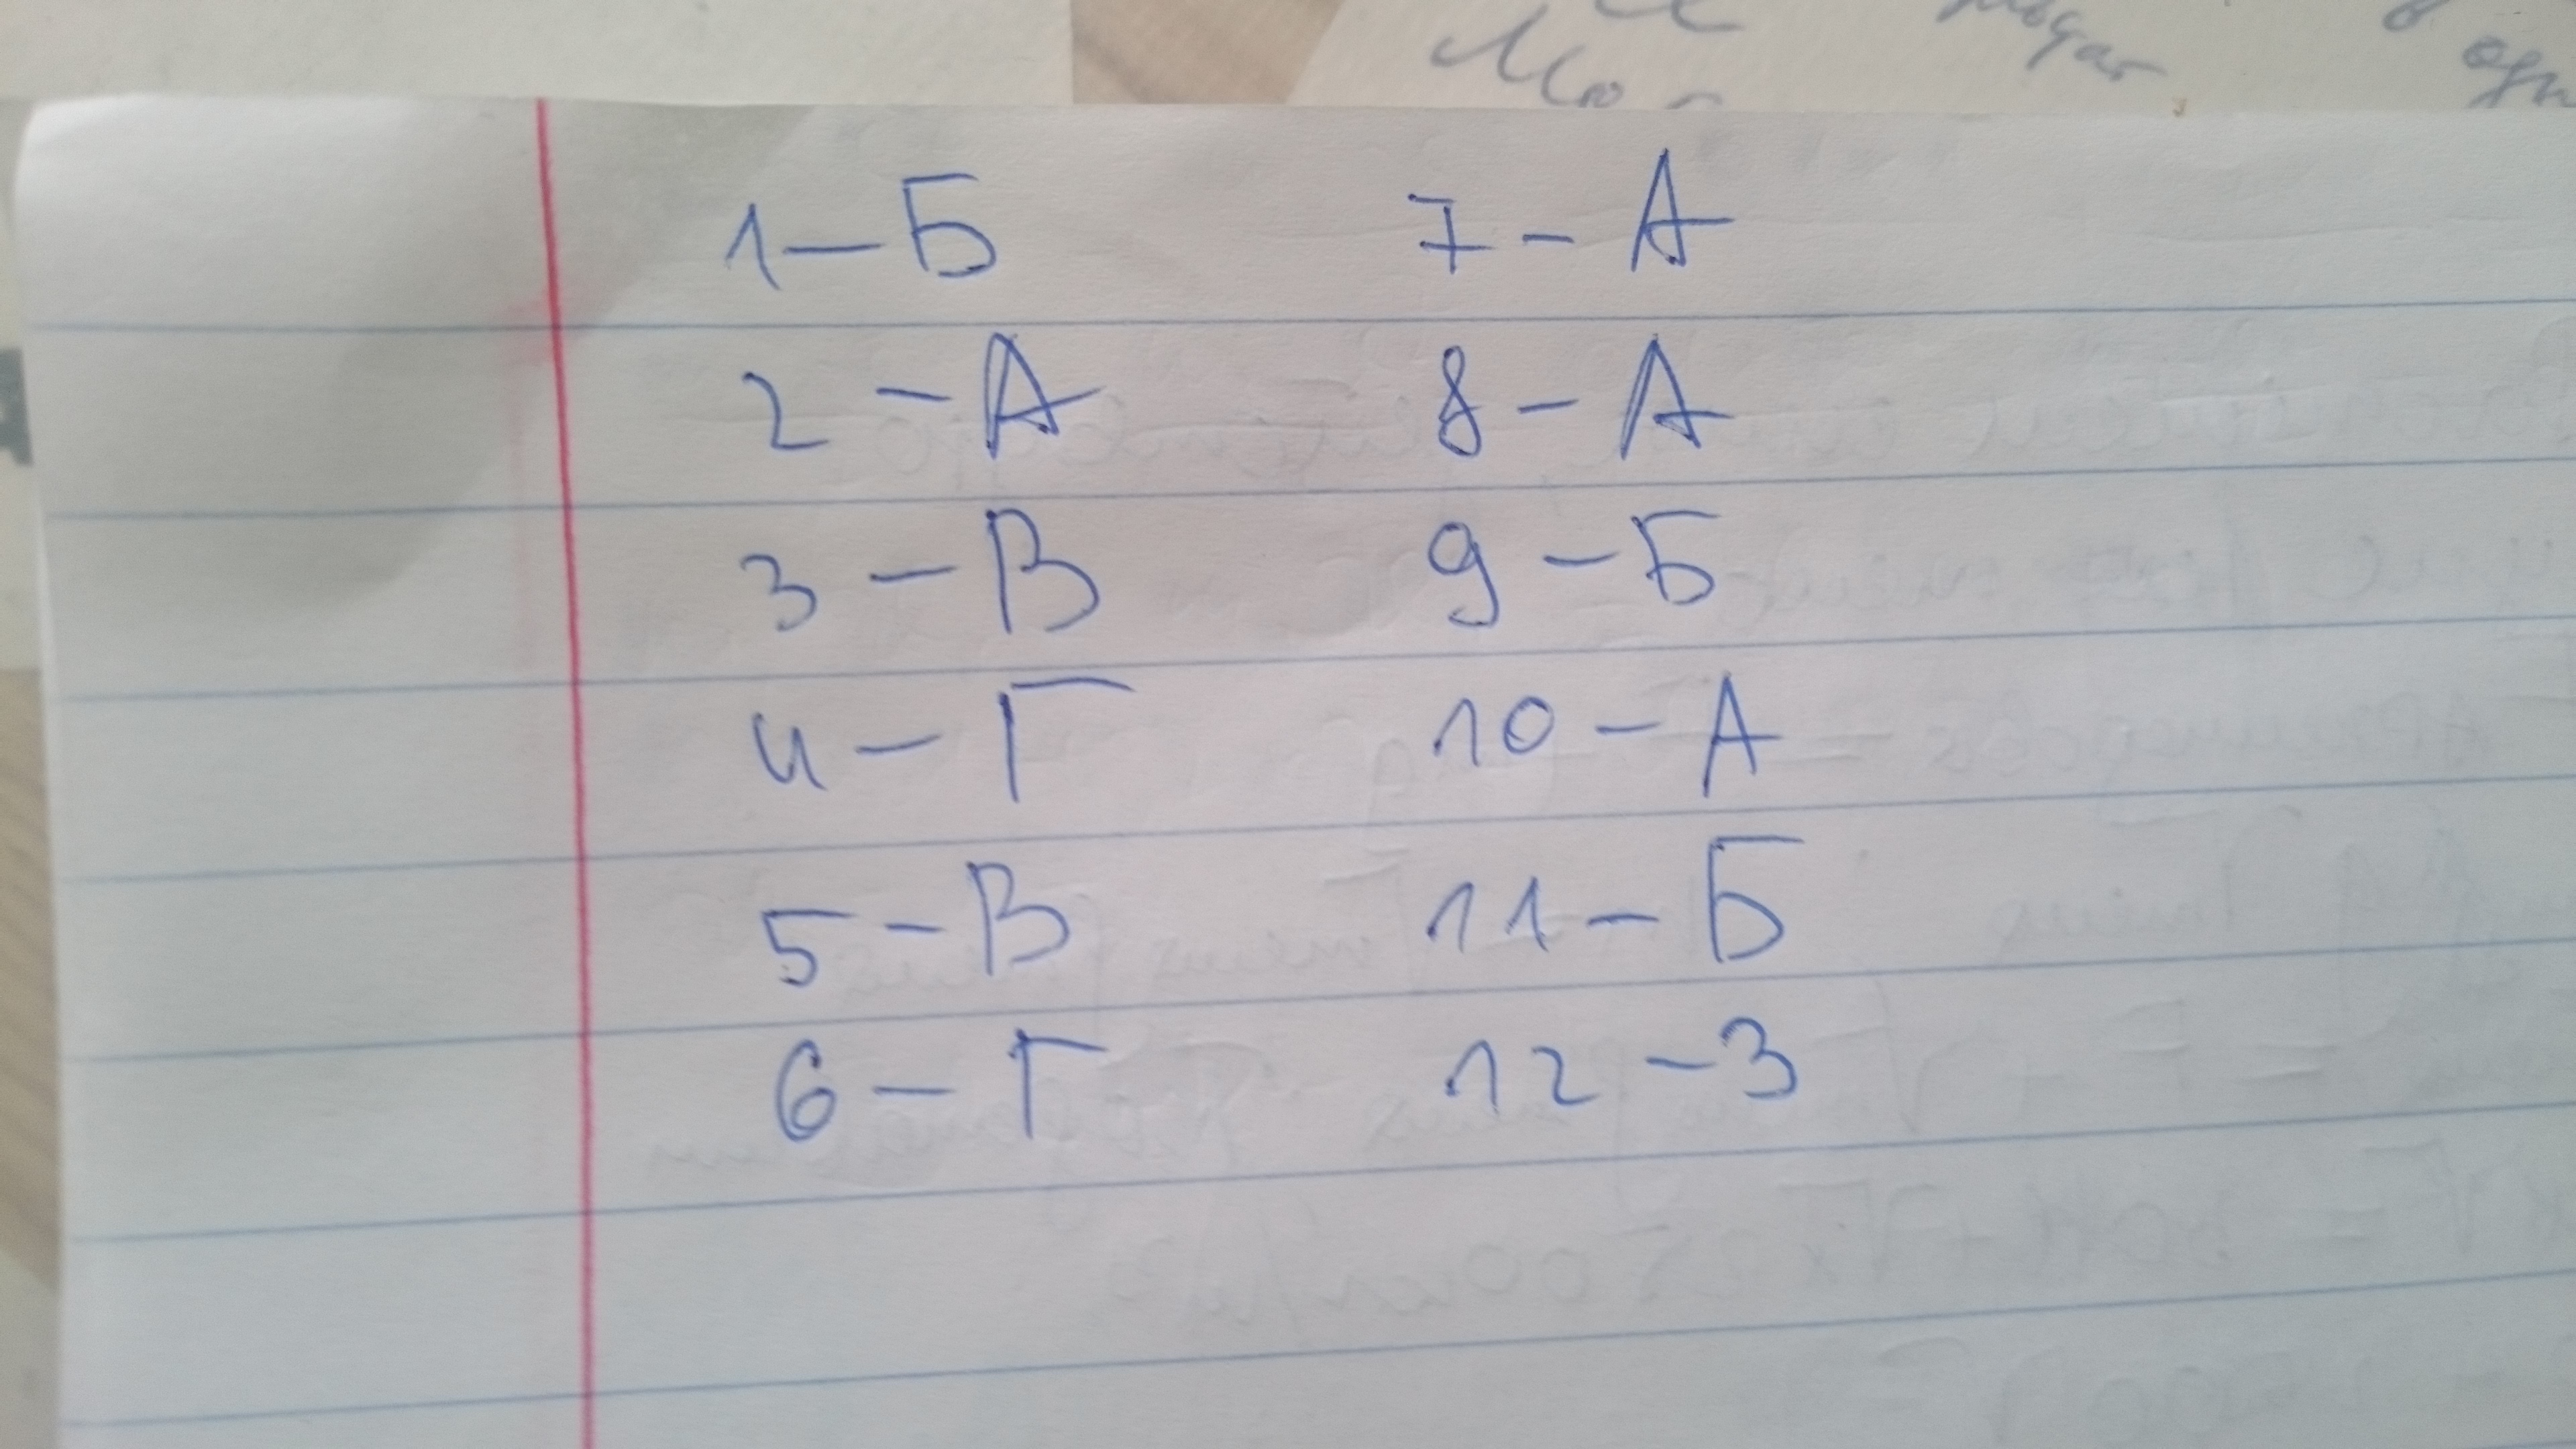 1 – Б
2 – А
3 – В
4 – Г
5 – В
6 – Г
7 – А
8 – А
9 – Б
10 – А
11 – Б
12 – З